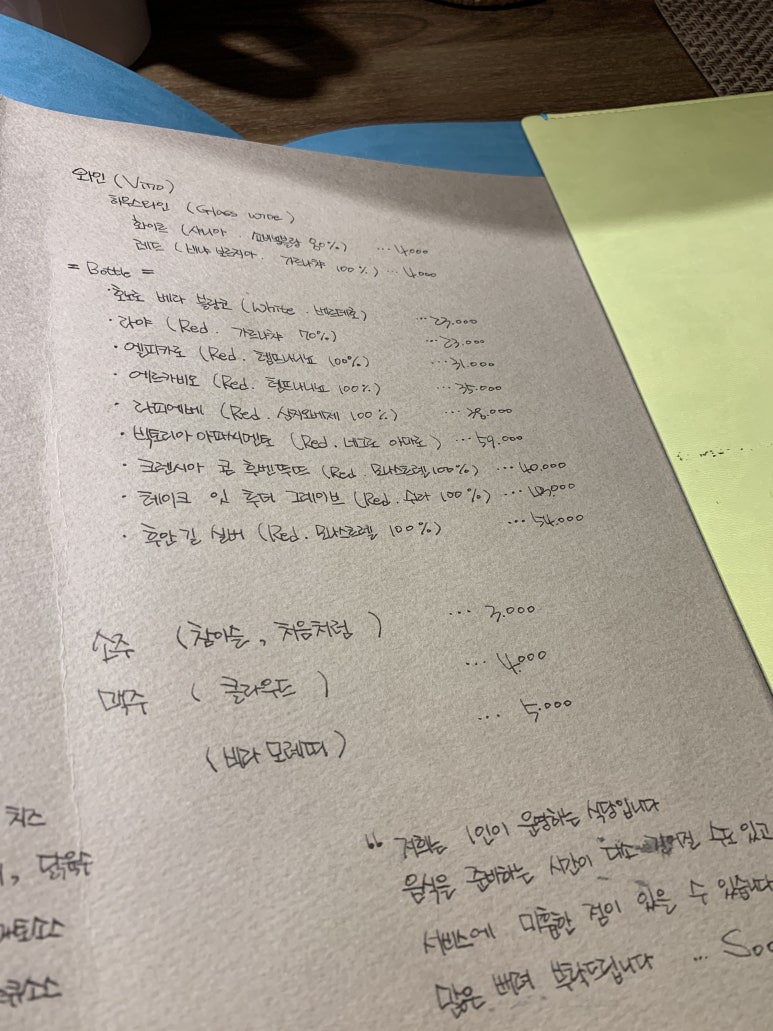 와인 (Vino)
하우스와인 (Glass wine)
화이트 (샤니아. 쇼비뇽블랑 80%) ... 4.000
레드 (베냐 보르지아. 가르나챠 100%) ... 4.000
= Bottle =
· 호노로 베라 블랑코 (White. 베르데호) ... 23.000
· 라야 (Red. 가르나챠 70%) ... 23.000
· 엘피카로 (Red. 템프라니뇨 100%) ... 31.000
· 에르카비오 (Red. 템프라니뇨 100%) ... 35.000
· 라피에베 (Red. 산지오베제 100%) ... 38.000
· 빅토리아 아파시멘토 (Red. 네그로 아마로) ... 59.000
· 크렌시아 콤 후벤뚜뜨 (Red. 모나스트렐 100%) ... 40.000
· 테이크 잇 투더 그레이브 (Red. 쉬라 100%) ...
· 후안길 실버 (Red. 모나스트렐 100%) ... 54.000
소주 (참이슬, 처음처럼) ... 3.000
맥주 (클라우드) ... 4.000
(비라 모레띠) ... 5.000
치즈
, 닭육수
마토소스
큐소스
“ 저희는 1인이 운영하는 식당입니다
음식을 준비하는 시간이 다소 길어질 수도 있고
서비스에 미흡한 점이 있을 수 있습니다
많은 배려 부탁드립니다 ... Soo